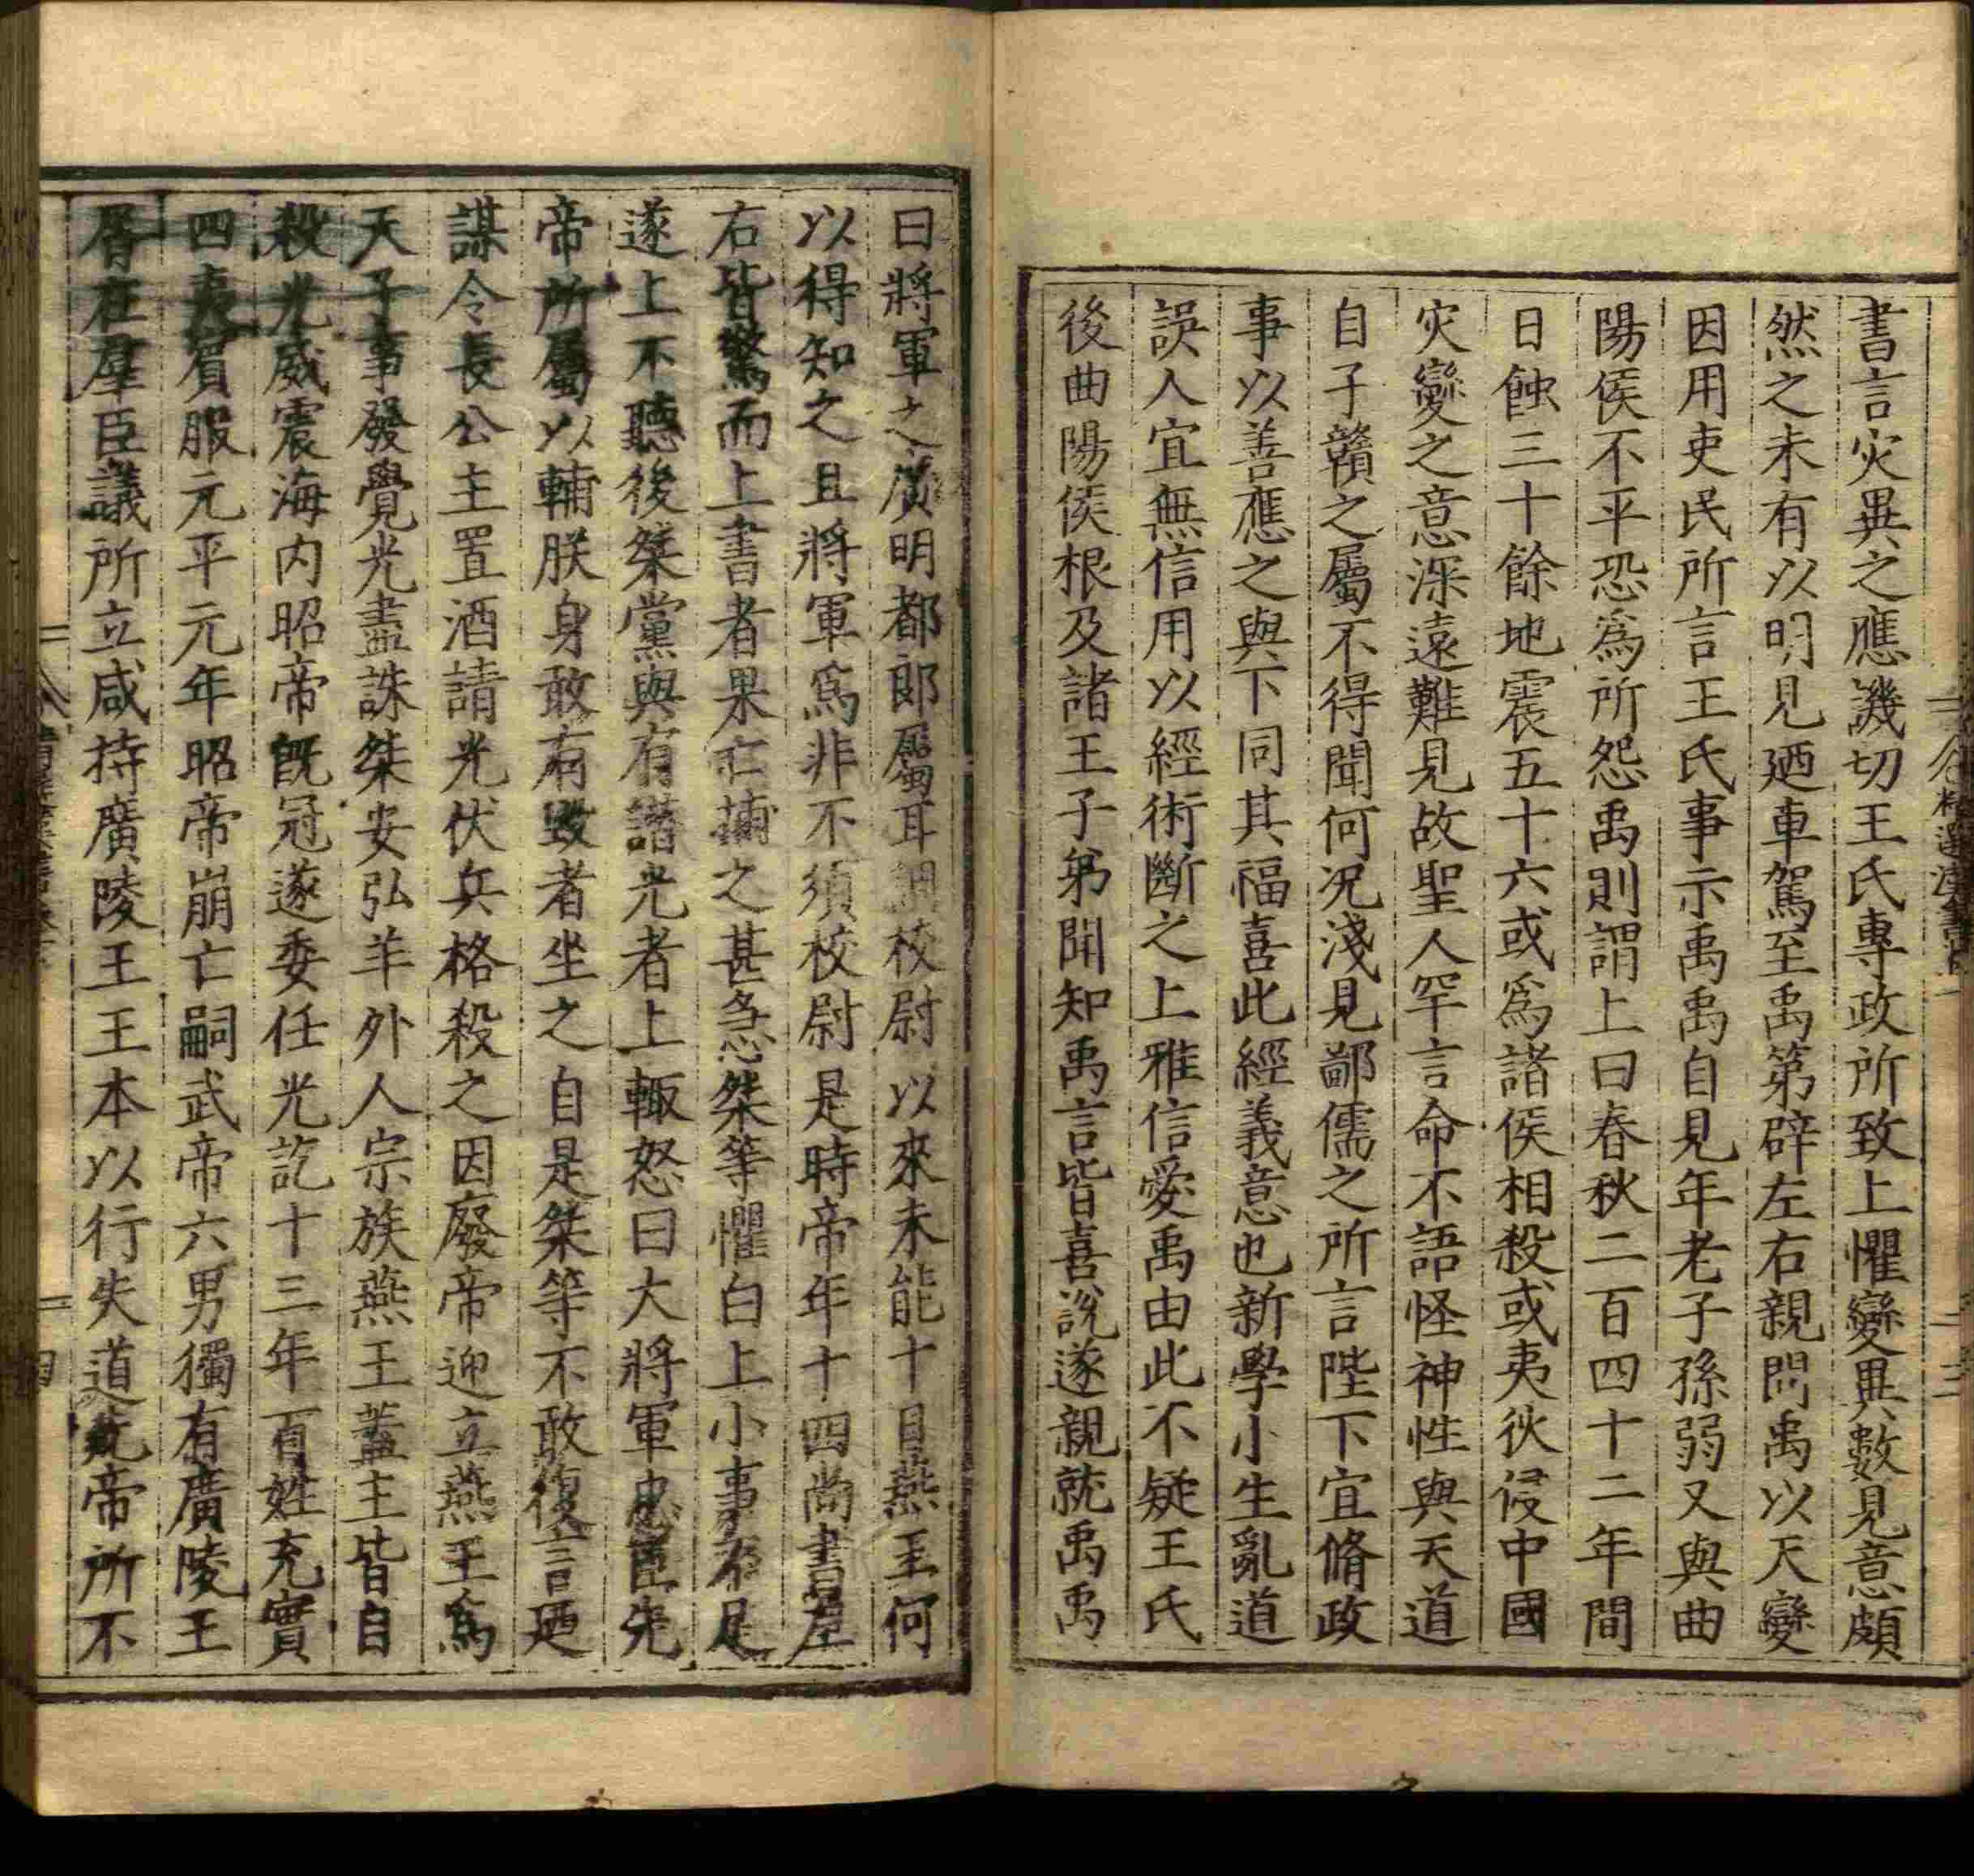 書言災異之應譏切王氏專政所致上懼變異數見意頗
然之未有以明見廼車駕至禹第辟左右親問禹以天變
因用吏民所言王氏事示禹禹自見年老子孫弱又與曲
陽侯不平恐爲所怨禹則謂上曰春秋二百四十二年間
日蝕三十餘地震五十六或爲諸侯相殺或夷狄侵中國
灾變之意深遠難見故聖人罕言命不語怪神性與天道
自子贛之屬不得聞何況淺見鄙儒之所言陛下宜脩政
事以善應之與下同其福喜此經義意也新學小生亂道
誤人宜無信用以經術斷之上雅信愛禹由此不疑王氏
後曲陽侯根及諸王子弟聞知禹言皆喜說遂親就禹禹
曰將軍之廣明都郎屬耳調校尉以來未能十日燕王何
以得知之且將軍爲非不須校尉是時帝年十四尚書左
右皆驚而上書者果亡捕之甚急桀等懼白上小事不足
遂上不聽後桀黨與有譖光者上輒怒曰大將軍忠臣先
帝所屬以輔朕身敢有毀者坐之自是桀等不敢復言廼
謀令長公主置酒請光伏兵格殺之因廢帝迎立燕王爲
天子事發覺光盡誅桀安弘羊外人宗族燕王蓋主皆自
殺光威震海内昭帝旣冠遂委任光訖十三年百姓充實
四夷賓服元平元年昭帝崩亡嗣武帝六男獨有廣陵王
胥在羣臣議所立咸持廣陵王王本以行失道先帝所不